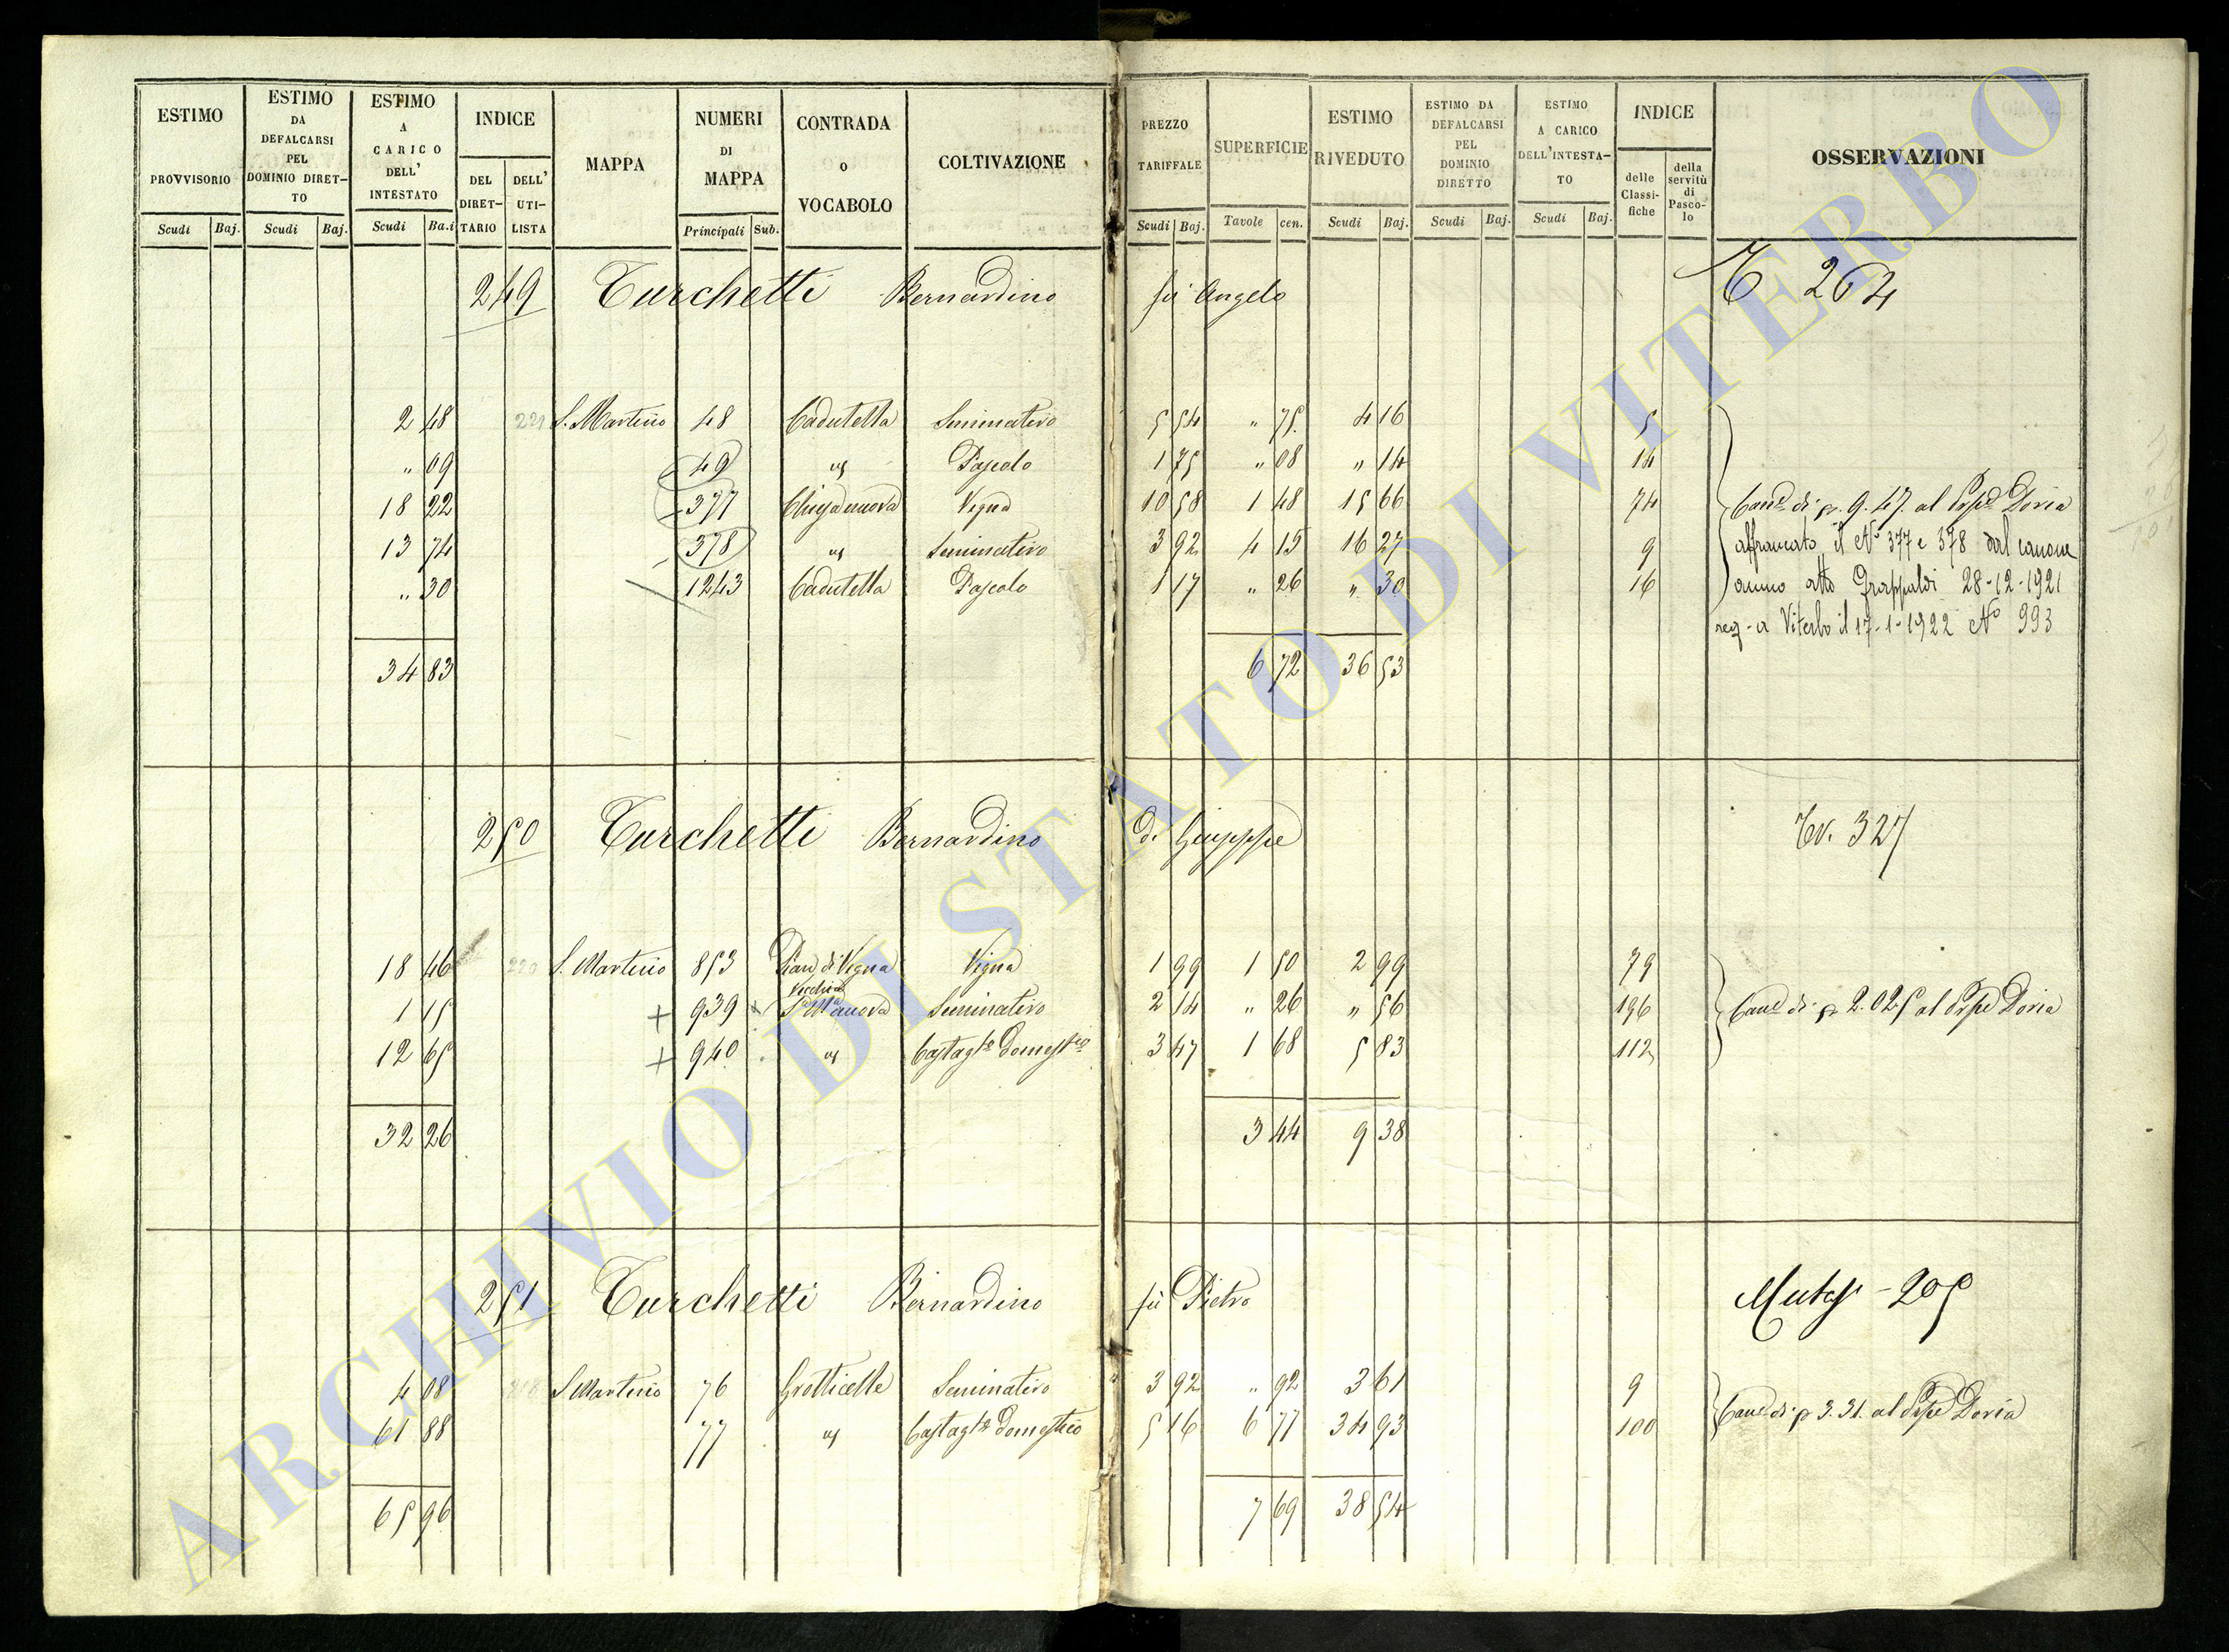 ESTIMO PROVVISORIO Scudi Baj.
ESTIMO DA DEFALCARSI PEL DOMINIO DIRET-TO Scudi Baj.
ESTIMO A CARICO DELL' INTESTATO Scudi Ba.i
INDICE DEL DIRET-TARIO DELL' UTI-LISTA
MAPPA
NUMERI DI MAPPA Principali Sub.
CONTRADA o VOCABOLO
COLTIVAZIONE
PREZZO TARIFFALE Scudi Baj.
SUPERFICIE Tavole cen.
ESTIMO RIVEDUTO Scudi Baj.
ESTIMO DA DEFALCARSI PEL DOMINIO DIRETTO Scudi Baj.
ESTIMO A CARICO DELL'INTESTA-TO Scudi Baj.
INDICE delle Classi-fiche della servitù di Pasco-lo
OSSERVAZIONI
249 Turchetti Bernardino fu Angelo 264
2 48 221 S. Martino 48 Cadutella Seminativo 5 54 " 75 4 16 5
" 09 49 Pascolo 1 75 " 08 " 14 14
18 22 377 Chiesa nuova Vigna 10 58 1 48 15 66 74 Cane di 9.47 al Pspe Doria
13 74 378 Seminativo 3 92 4 15 16 27 9 affrancato il N° 377 e 378 dal canone
" 30 1243 Cadutella Pascolo 1 17 " 26 " 30 16 annuo atto Grappaldi 28-12-1921
reg-a Viterbo il 17-1-1922 N° 993
34 83 6 72 36 53
250 Turchetti Bernardino di Giuseppe 327
18 46 220 S. Martino 853 Pian di Vigna Vigna 1 99 1 50 2 99 79
Vecchia
1 15 + 939 + Sa Ma nuova Seminativo 2 14 " 26 " 56 196 Cane di 2.025 al Pspe Doria
12 65 + 940 Castagto Domestico 3 47 1 68 5 83 112
32 26 3 44 9 38
251 Turchetti Bernardino fu Pietro 205
4 08 218 S Martino 76 Grotticelle Seminativo 3 92 " 92 3 61 9
61 88 77 Castagto Domestico 5 16 6 77 34 93 100 Cane di 3.31. al Pspe Doria
65 96 7 69 38 54
ARCHIVIO DI STATO DI VITERBO